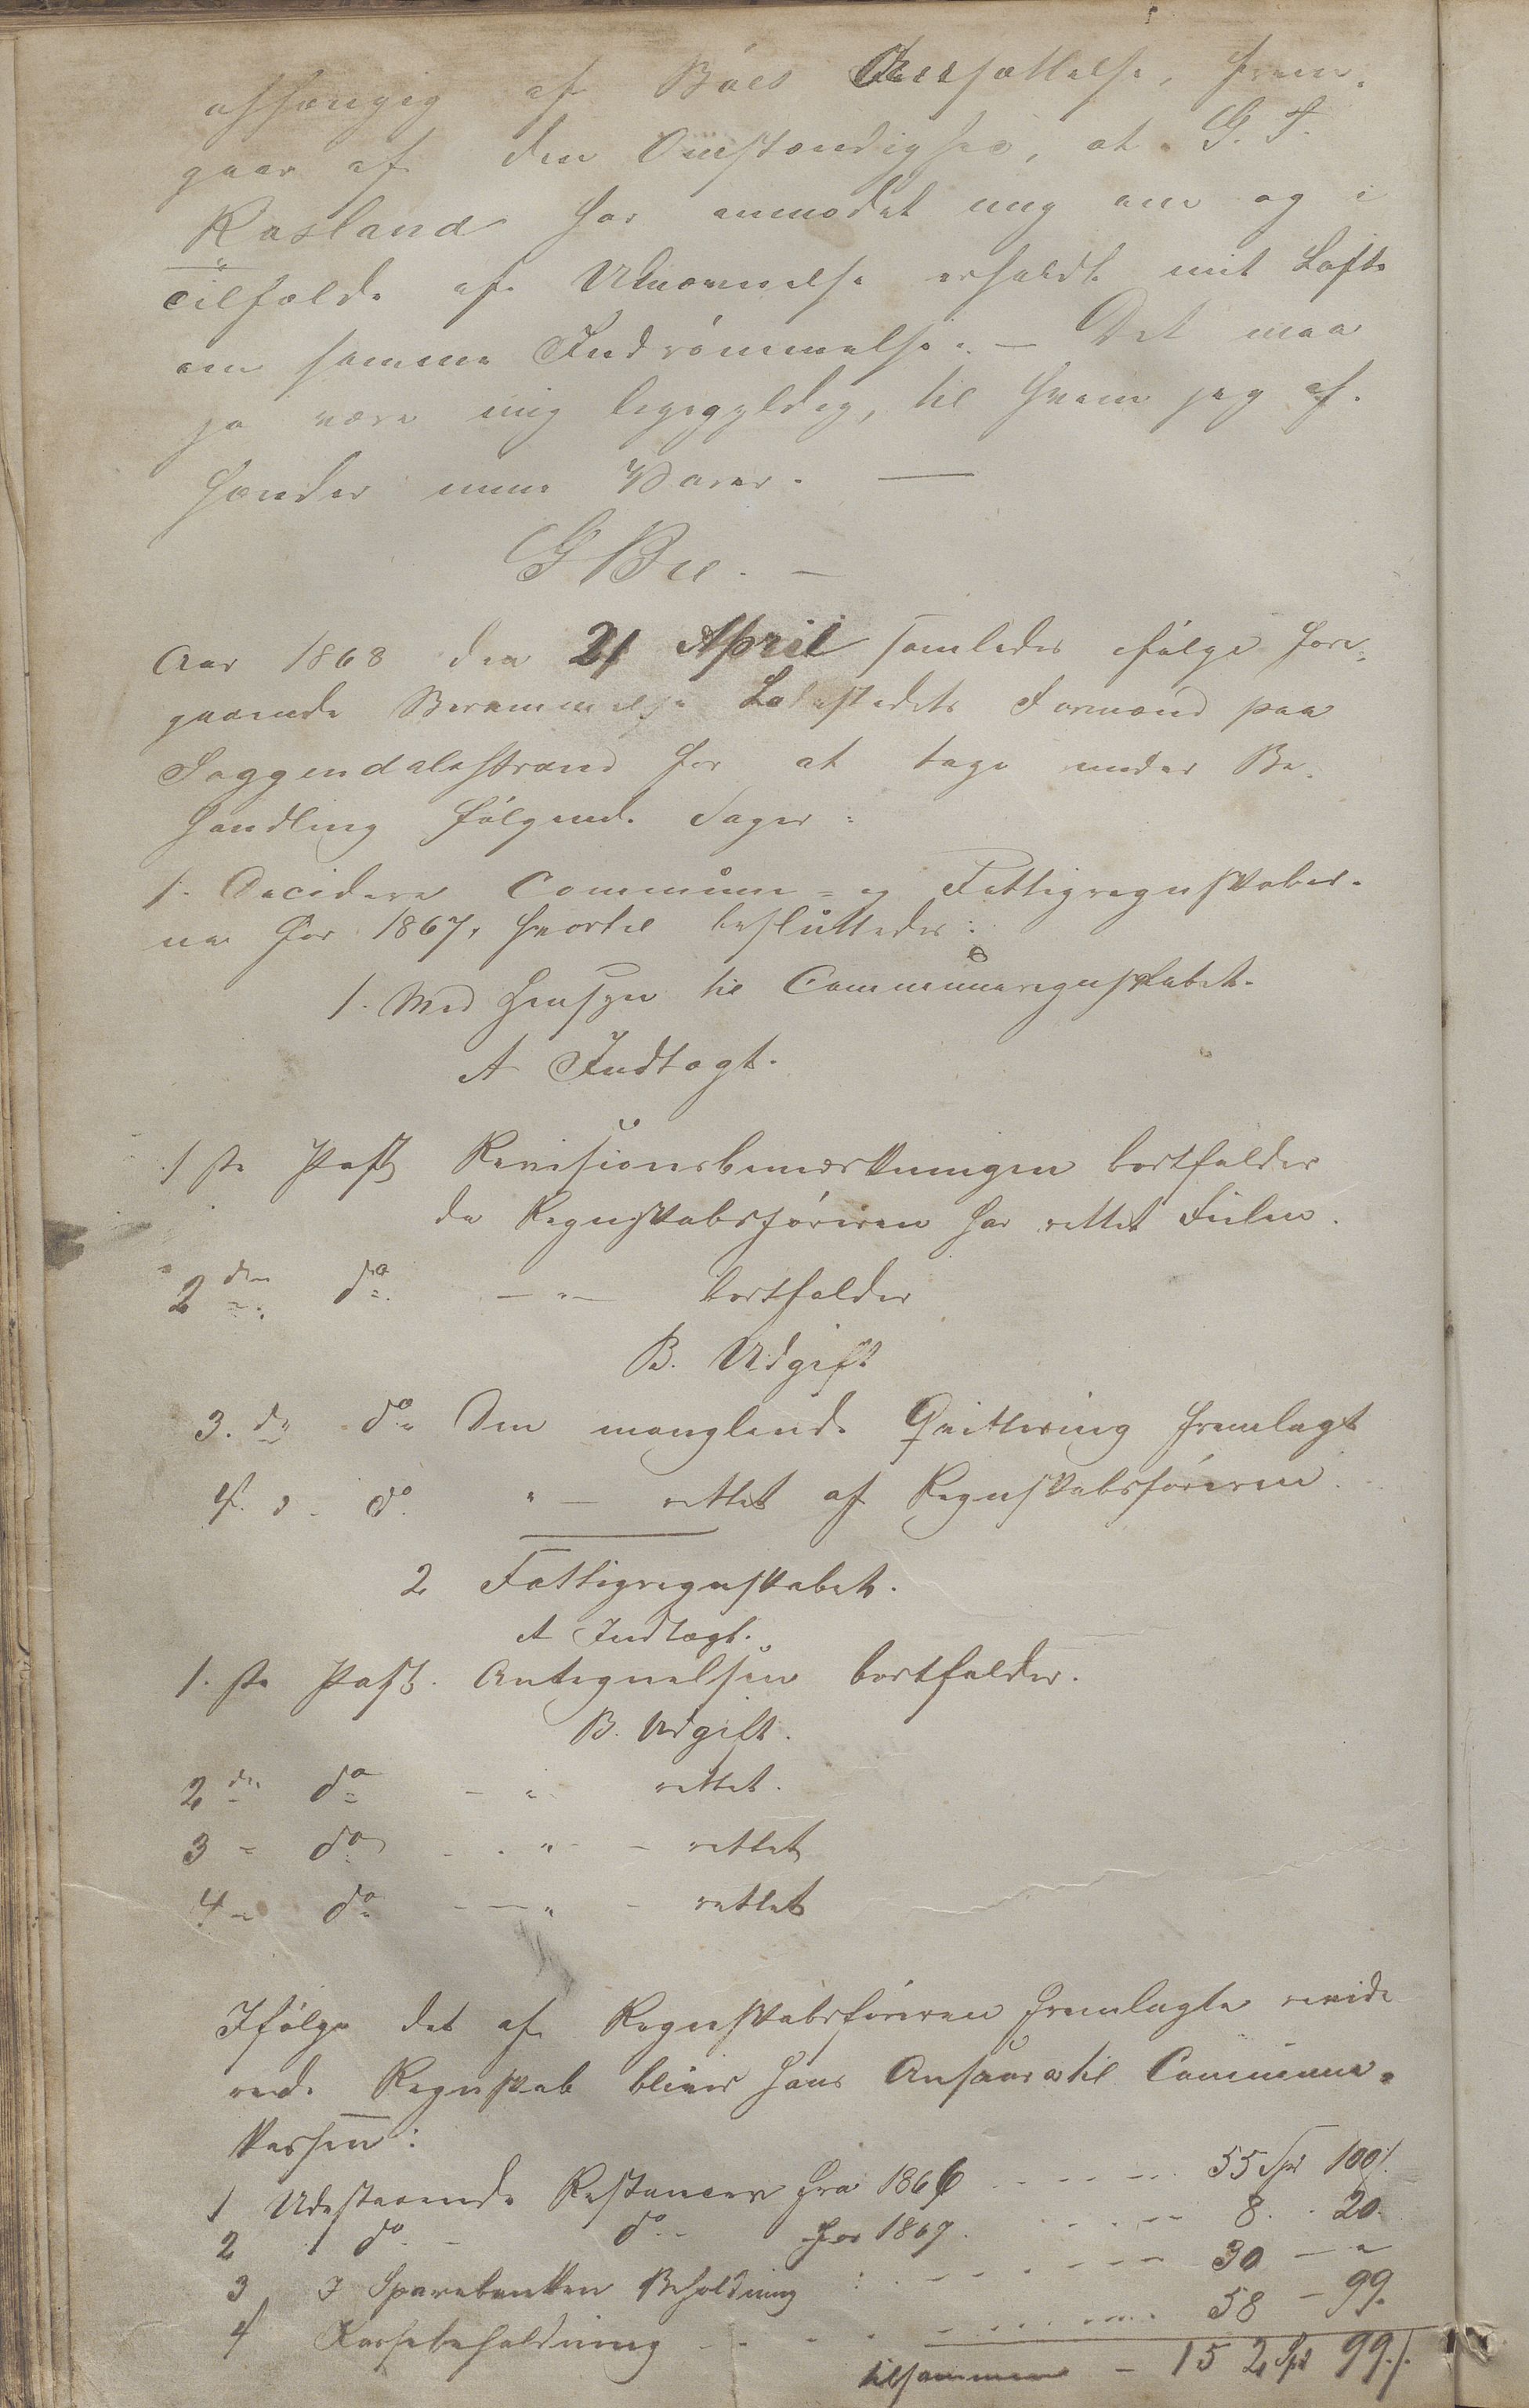 afhængig af Bües Ansættelse, frem-
gaar af den Omstændighed, at G. T.
Rosland har anmodet mig om og i
Tilfælde af Udnævnelse erholdt mit Løfte
om samme Indrømmelse. — Det maa
jo være mig ligegyldig, til hvem jeg af-
hænder mine Varer. —
G Bue. —
Aar 1868 den 21 April samledes ifølge fore-
gaaende Berammelse Ladestedets Formænd paa
Soggendalsstrand for at tage under Be-
handling følgende Sager:
1. Decidere Commune- og Fattigregnskaber-
ne for 1867, hvortil besluttedes:
1. Med Hensyn til Communeregnskabet.
A Indtægt.
1ste Post Revisionsbemærkningen bortfalder
da Regnskabsføreren har rettet Feilen.
2den do — " — bortfalder
B. Udgift
3. die do Den manglende Qvittering fremlagt
4. d. do " — rettet af Regnskabsføreren.
2 Fattigregnskabet.
A Indtægt.
1.ste Post. Antegnelsen bortfalder.
B. Udgift.
2den do - " rettet.
3 - do - " - rettet
4 - do - — " - rettet
Ifølge det af Regnskabsføreren fremlagte revide
rede Regnskab bliver hans Ansvar til Commune-
kassen:
1 Udestaaende Restancer fra 1866 55 Spd 100 ſ.
2 do - do - for 1867 8 . 20.
3 I Sparebanken Beholdning 30 — "
4 Kassebeholdning 58 — 99.
tilsammen — 152 Spd 99 ſ.